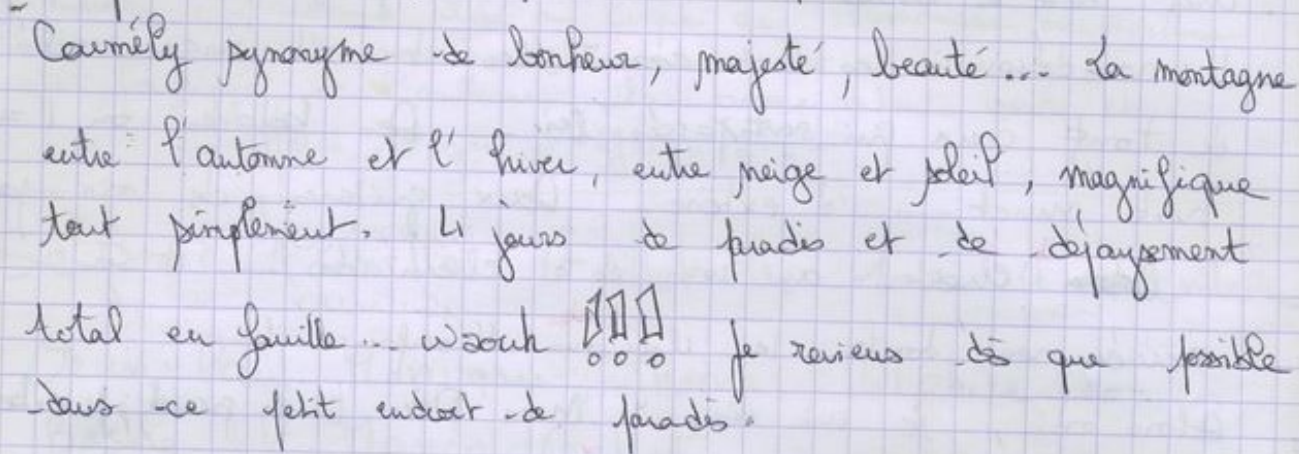 Caumély synonyme de bonheur, majesté, beauté... La montagne
entre l'automne et l'hiver, entre neige et soleil, magnifique
tout simplement. 4 jours de paradis et de dépaysement
total en famille... waouh !!! Je reviens dès que possible
dans ce petit endroit de paradis.